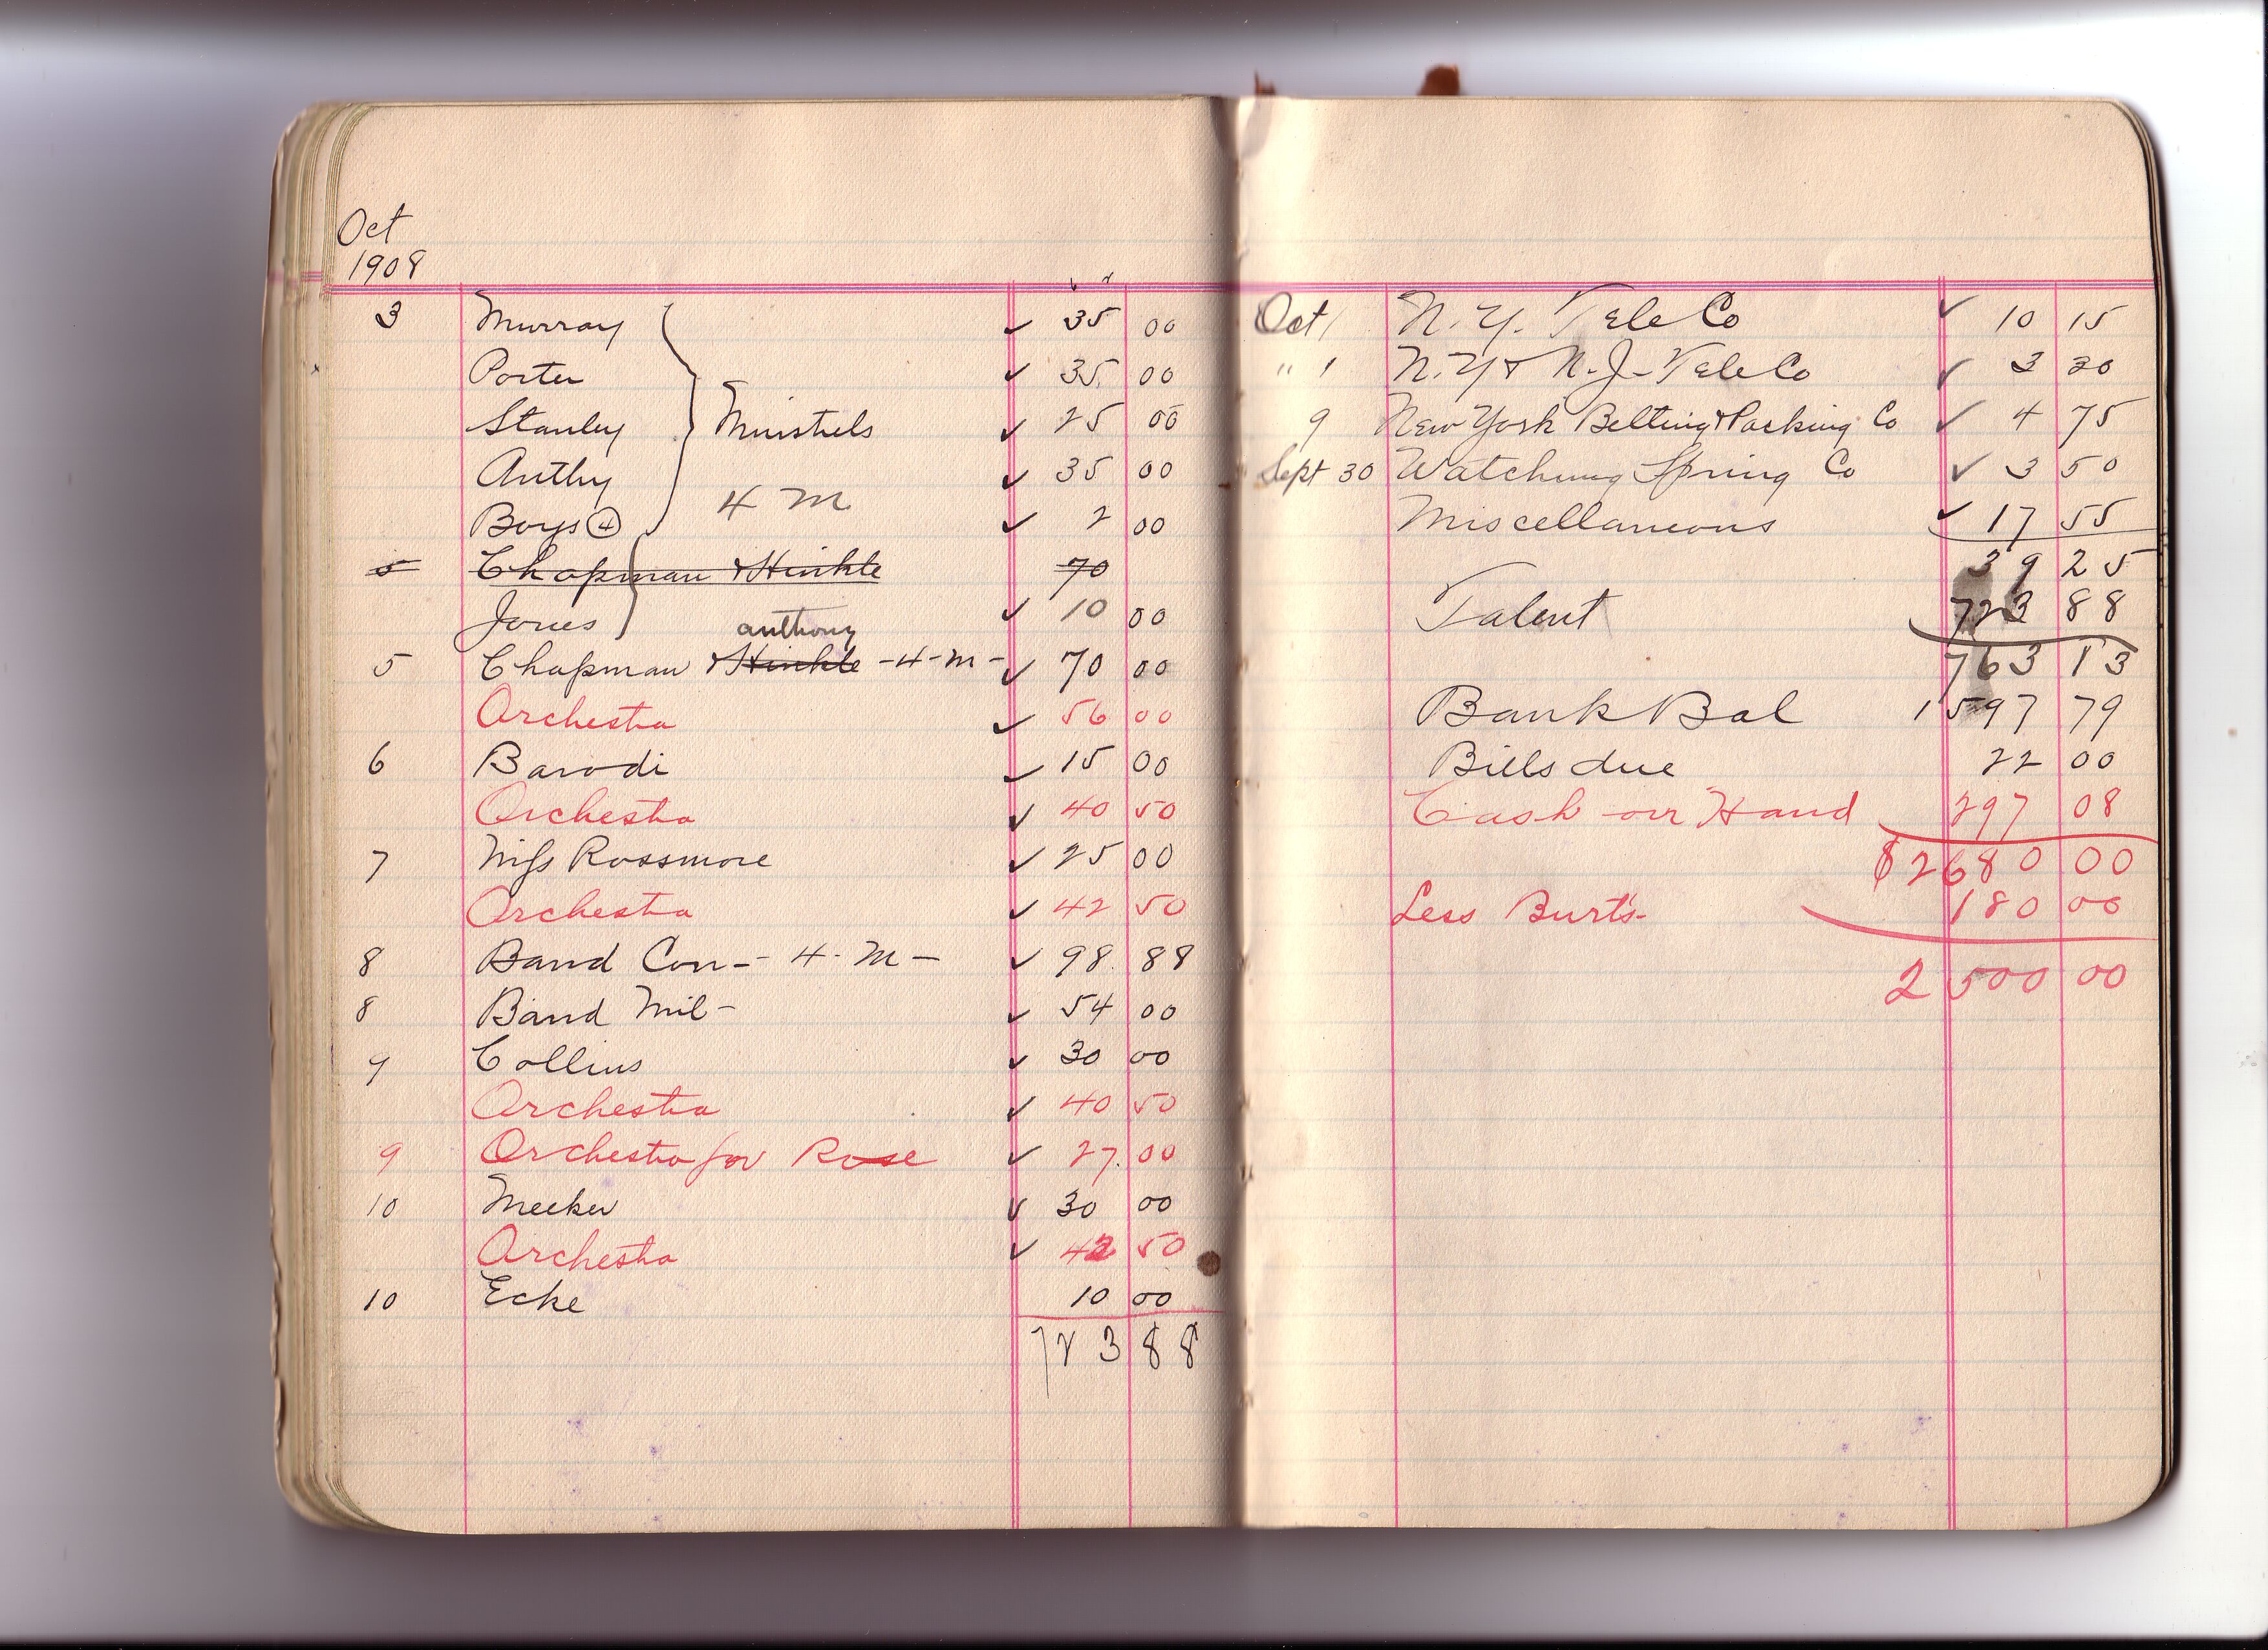 Oct
1908
3 Murray ✓ 35 00
Porter ✓ 35 00
Stanley Minstrels ✓ 25 00
Anthy ✓ 35 00
4 M
Boys ④ ✓ 2 00
5 Chapman & Hinkle 70
Jones ✓ 10 00
anthony
5 Chapman & Hinkle -4-M- ✓ 70 00
Orchestra ✓ 56 00
6 Barodi ✓ 15 00
Orchestra ✓ 40 50
7 Miss Rossmore ✓ 25 00
Orchestra ✓ 42 50
8 Band Con- - 4-M- ✓ 98 88
8 Band Mil- ✓ 54 00
9 Collins ✓ 30 00
Orchestra ✓ 40 50
9 Orchestra for Rose ✓ 27 00
10 Meeker ✓ 30 00
Orchestra ✓ 42 50
10 Ecke 10 00
723 88
Oct 1 N.Y. Tele Co ✓ 10 15
" 1 N.Y & N.J- Tele Co ✓ 3 30
9 New York Belting & Packing Co ✓ 4 75
Sept 30 Watchung Spring Co ✓ 3 50
Miscellaneous ✓ 17 55
39 25
Talent 723 88
763 13
Bank Bal 1597 79
Bills due 22 00
Cash on Hand 297 08
$2680 00
Less Burt's- 180 00
2500 00